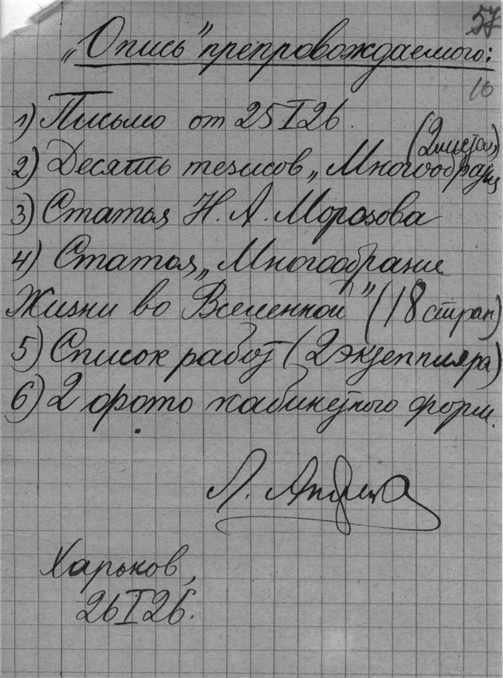 57
10
„Опись" препровождаемого:
1) Письмо от 25 I 26.
(2 листа)
2) Десять тезисов „Многообразия
3) Статья Н. А. Морозова
4) Статья „Многообразие
Жизни во Вселенной" (18 стран)
5) Список работ (2 экземпляра)
6) 2 фото кабинетного форм.
Л.
Харьков,
26 I 26.